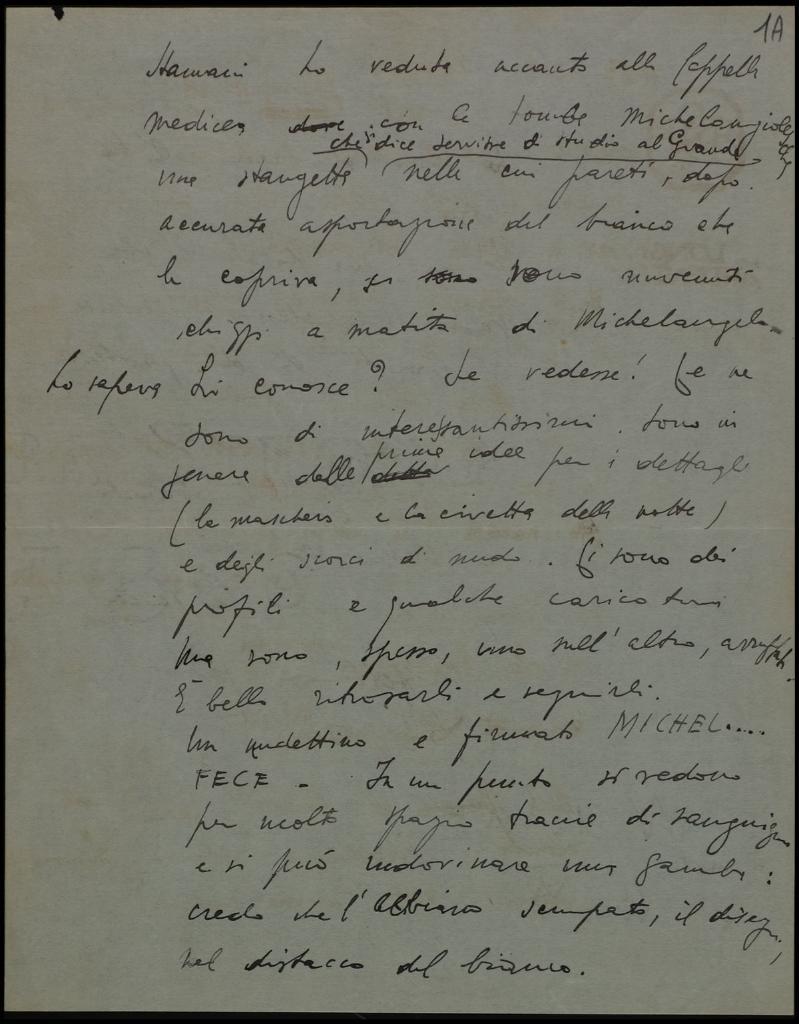 1A
Stamani ho veduta accanto alla Cappella
Medicea dove con le tombe Michelangiolesche
che si dice servisse di studio al Grande
una stanzetta nelle cui pareti, dopo
accurata asportazione del bianco che
le copriva, si sono sono rinvenuti
schizzi a matita di Michelangelo
Lo sapeva Li conosce? Se vedesse! Ce ne
sono di interessantissimi. Sono in
prime idee
genere delle dette per i dettagli
(la maschera e la civetta della notte)
e degli scorci di nudo. Ci sono dei
profili e qualche caricatura
Ma sono, spesso, uno sull'altro, arruffati.
È bello ritrovarli e seguirli.
Un nudettino è firmato MICHEL....
FECE - In un punto si vedono
per molto spazio tracce di sanguigna
e si può indovinare una gamba:
credo che l'abbiano sciupato, il disegno,
nel distacco del bianco.